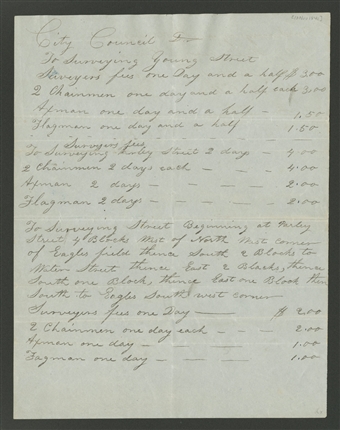 City Council Dr
To Surveying Young Street
Surveyors fees one Day and a half $ 3.00
2 Chainmen one day and a half each $ 3.00
Axman one day and a half - - 1.50
Flagman one day and a half 1.50
Surveyors fees
To Surveying Street 2 days - 4.00
2 Chainmen 2 days each - - 4.00
Axman 2 days - - - 2.00
Flagman 2 days - - - 2.00
To Surveying Street Beginning at
Street 4 Blocks West of North West corner
of Eagles field thence South 2 Blocks to
Street thence East 2 Blocks, thence
South one Block, thence East one Block then
South to Eagles South west corner
Surveyors fees one Day - - $ 2.00
2 Chainmen one day each - - - 2.00
Axman one day - - - - 1.00
Fagman one day - - - - 1.00